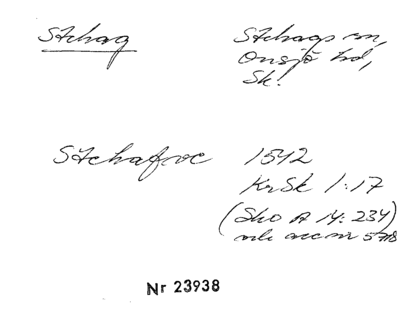 Stehag
Stehags sn,
Onsjö hd,
Sk.
Stehafve 1542
KrSk 1:17
(Sko A 14: 234)
acc nr
Nr 23938